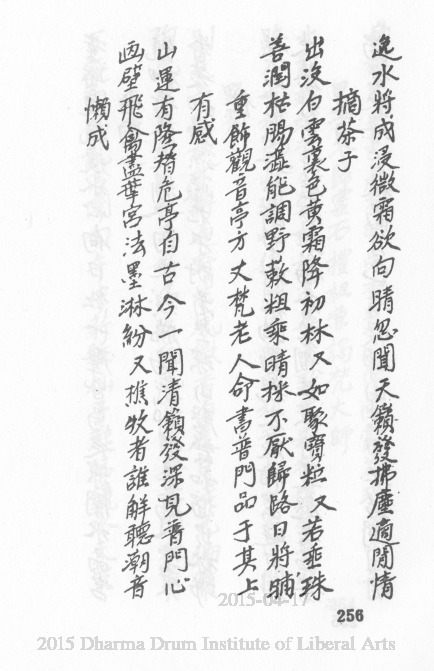 逸水將成浸微霜欲向晴忽聞天籟發拂塵適閒情
摘茶子
出沒白雲裏色黃霜降初林又如聚寶粒又若垂珠
善潤枯腸澁能調野蔌粗乘晴採不厭歸路日將晡
重飾觀音亭方丈梵老人命書普門品于其上
有感
山運有隆替危亭自古今一聞清籟發深見普門心
画壁飛禽盡華宮法墨淋紛又樵牧者誰解聽潮音
懶成
2015-04-17
256
2015 Dharma Drum Institute of Liberal Arts